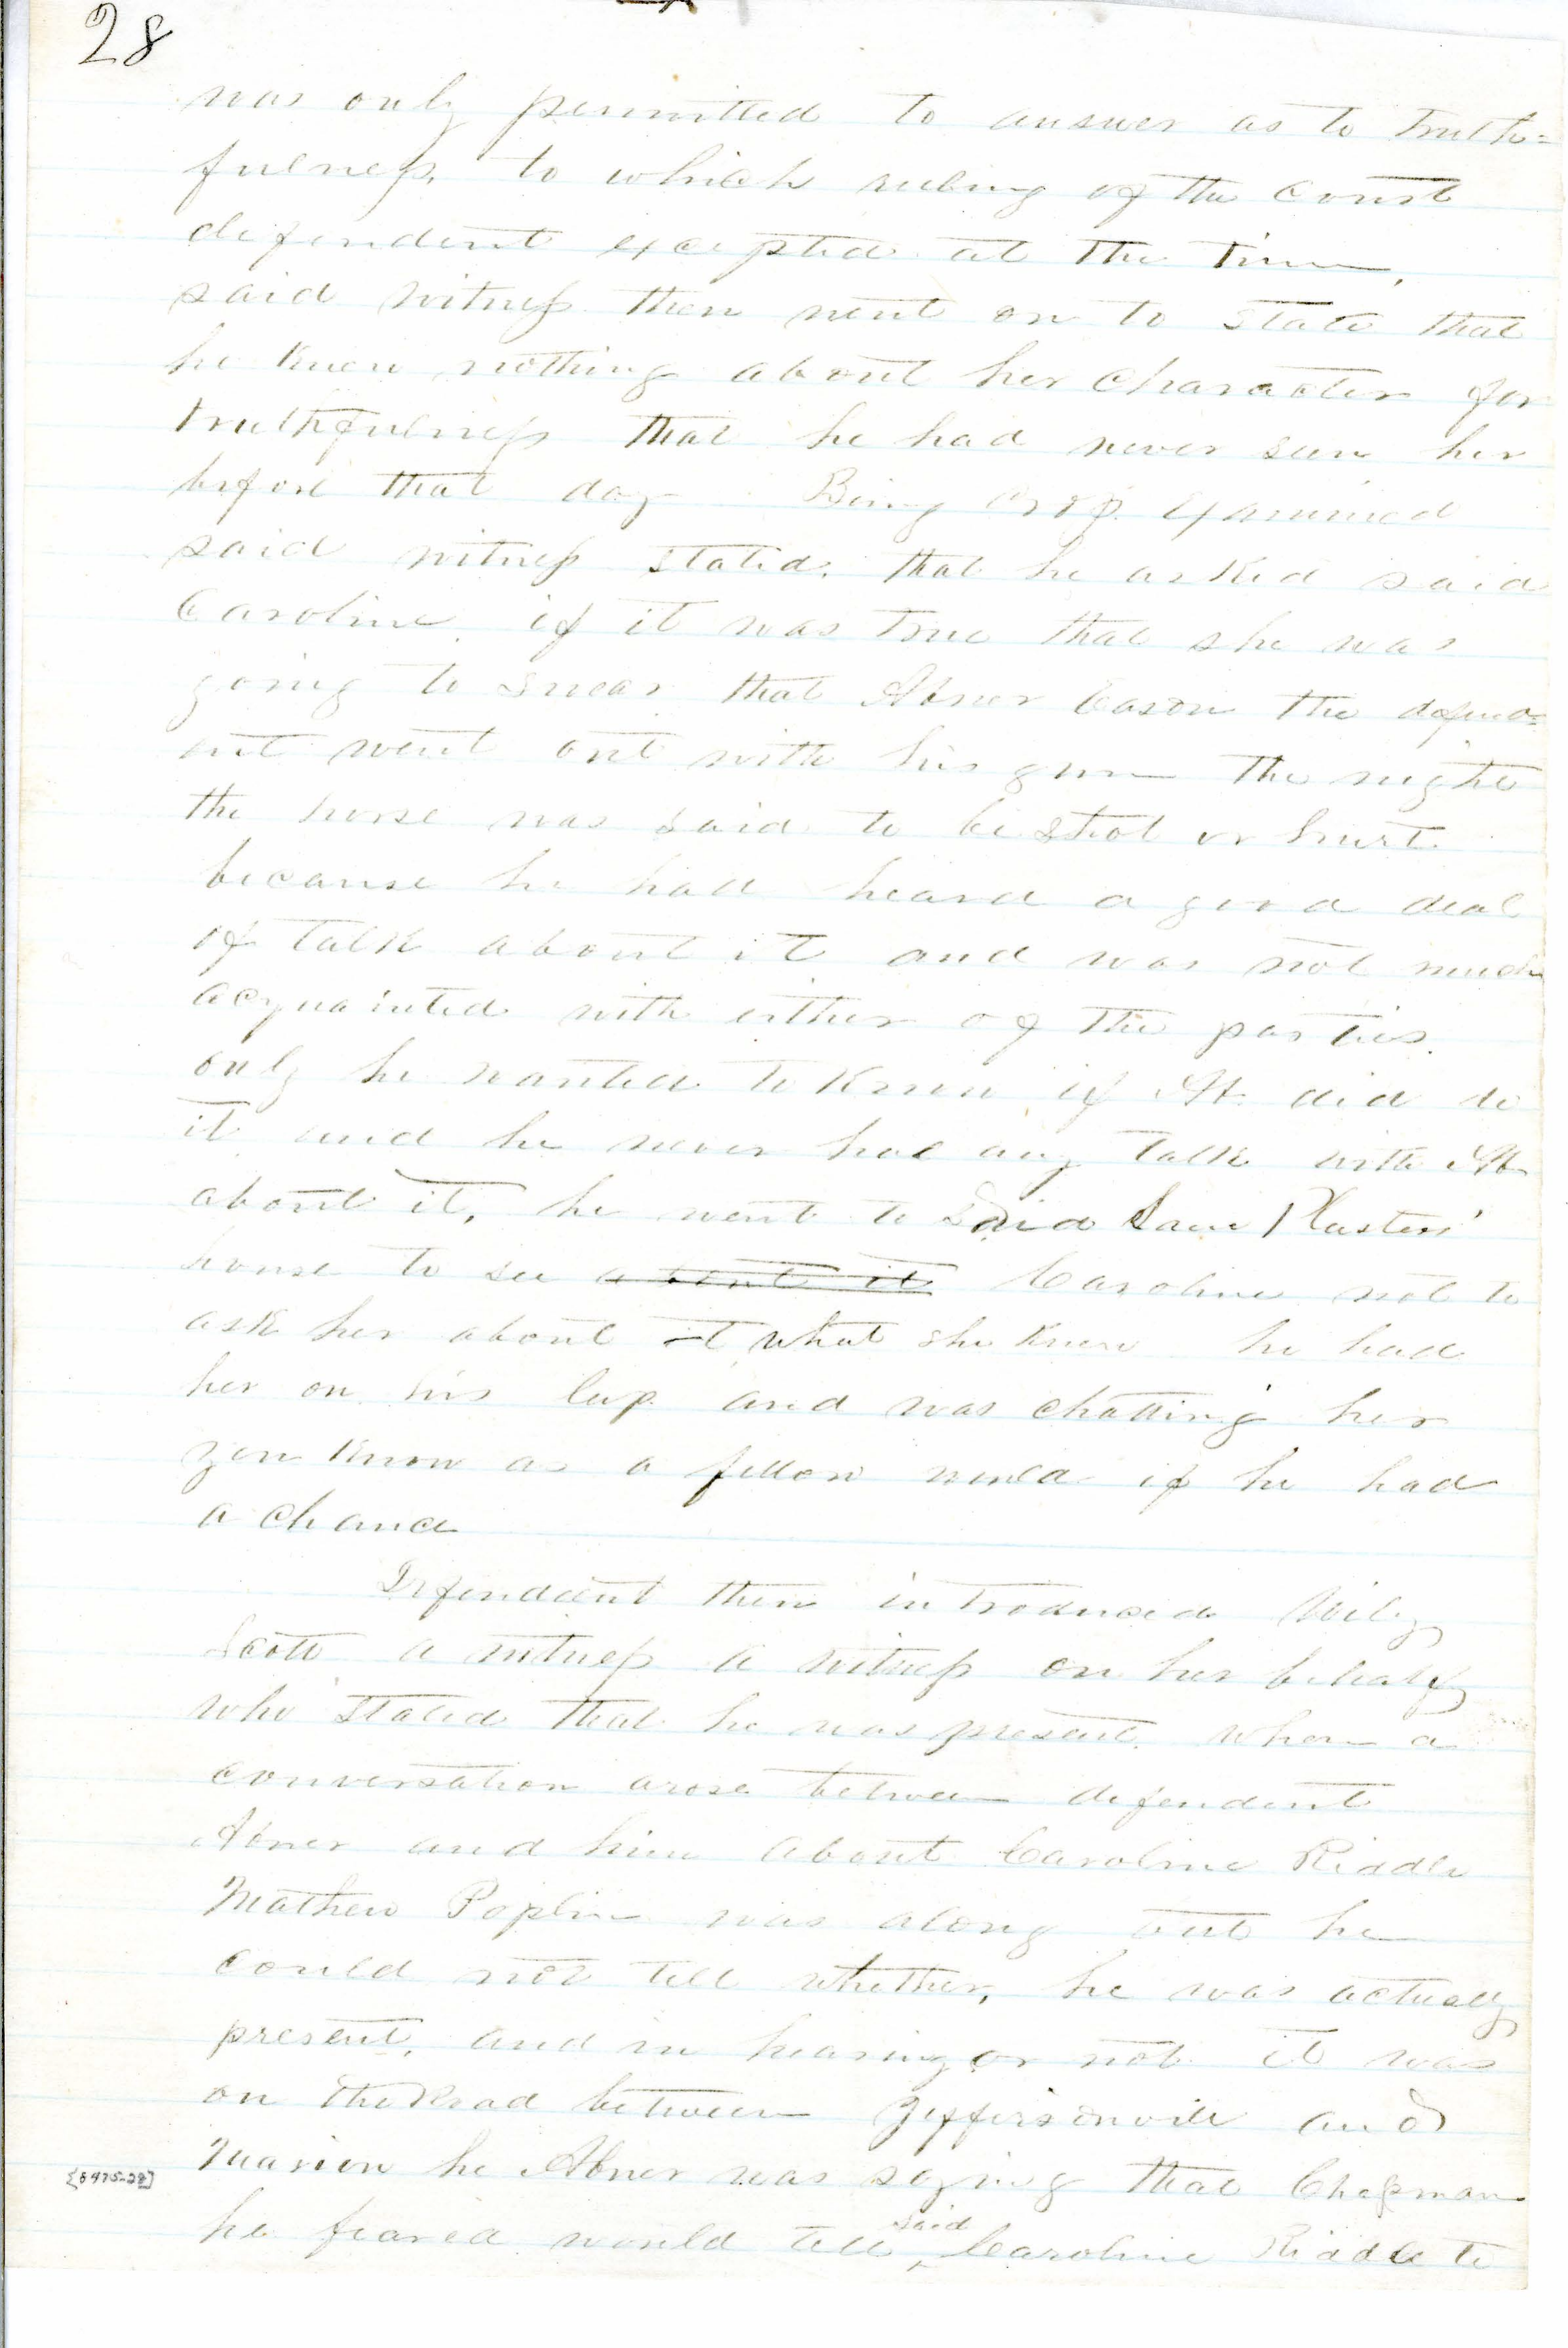 28
was only permitted to answer as to truth=
fulness, to which ruling of the Court
defendent excepted at the time,
said witness then went on to state that
he knew nothing about her character for
truthfulness that he had never seen her
before that day Being cross examined
said witness stated, that he asked said
Caroline, if it was true that she was
going to swear that Abner Cason the defend=
ent went out with his gun the night
the horse was said to be shot or hurt
because he had heard a good deal
of talk about it and was not much
acquainted with either of the parties.
only he wanted to know if Ab did do
it and he never had any talk with Ab
about it, he went to said Sam Plasters'
house to see about it Caroline not to
ask her about it what she knew he had
her on his lap and was chatting her
you know as a fellow would if he had
a chance
Defendant then introduced Wiley
Scott a witness a witness on her behalf
who stated that he was present when a
conversation arose between defendent
Abner and him about Caroline Riddle
Mathew Poplin was along but he
could not tell whether, he was actually
present, and in hearing or not it was
on the Road between Jeffersonville and
Marion he Abner was saying that Chapman
[6475-28]
he feared would tell said Caroline Riddle to